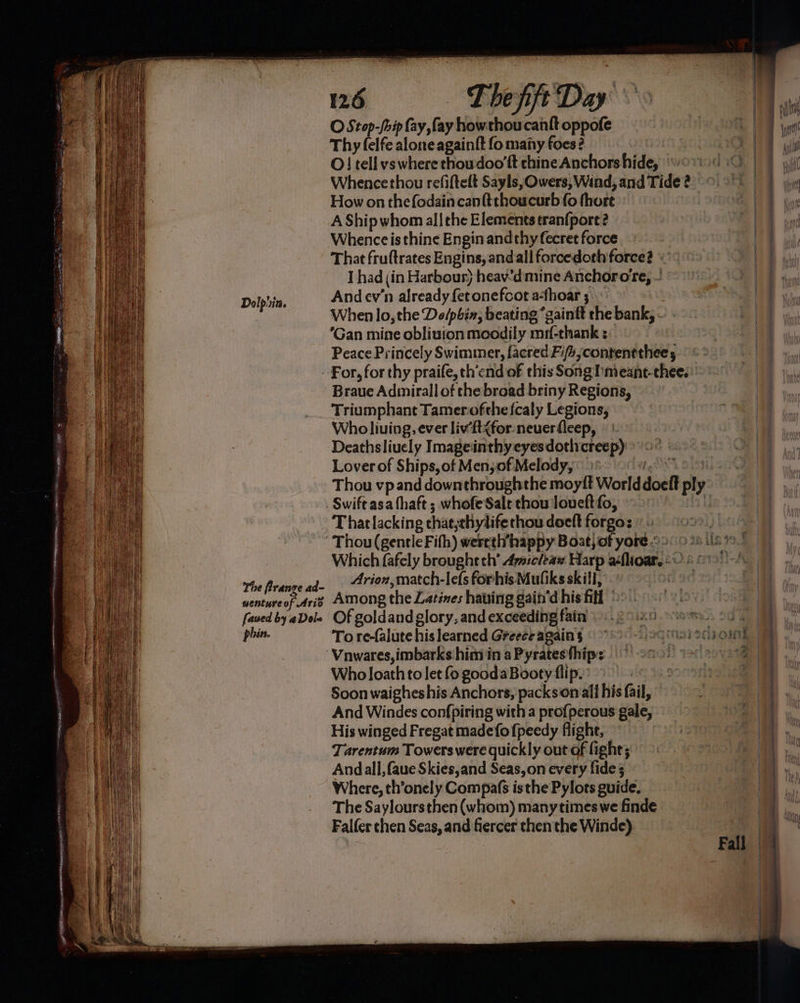 126 The fift Day
O Stop-ſhip ſay, ſay how thou canſt oppoſe
Thy ſelfe alone againſt ſo many foes?
O! tell vs where thou doo'ſt thine Anchors hide,
Whence thou reſiſteſt Sayls, Owers, Wind, and Tide?
How on the ſodain canſt thou curb ſo ſhort
A Ship whom all the Elements tranſport?
Whence is thine Engin and thy ſecret force
That fruſtrates Engins, and all force doth force?
I had (in Harbour) heav'd mine Anchor o're,
Dolphin.
And ev'n already ſet one foot a-ſhoar;
When lo, the Dolphin, beating 'gainſt the bank,
'Gan mine obliuion moodily miſ-thank:
Peace Princely Swimmer, ſacred Fiſh, content thee,
For, for thy praiſe, th'end of this Song I meant thee.
Braue Admirall of the broad briny Regions,
Triumphant Tamer of the ſcaly Legions,
Who liuing, ever liv'ſt (for neuer ſleep,
Deaths liuely Image in thy eyes doth creep)
Lover of Ships, of Men, of Melody,
Thou vp and down through the moyſt World doeſt ply
Swift as a ſhaft; whoſe Salt thou loueſt ſo,
That lacking that, thy life thou doeſt forgo:
Thou (gentle Fiſh) wert th'happy Boat, of yore
Which ſafely brought th' Amiclean Harp a-ſhoar.
The ſtrange adventure of Ariō ſaued by a Dolphin.
Arion, match-leſs for his Muſiks skill,
Among the Latines hauing gain'd his fill
Of gold and glory, and exceeding fain
To re-ſalute his learned Greece again;
Vnwares, imbarks him in a Pyrates ſhip:
Who loath to let ſo good a Booty ſlip,
Soon waighes his Anchors, packs on all his ſail,
And Windes conſpiring with a proſperous gale,
His winged Fregat made ſo ſpeedy flight,
Tarentum Towers were quickly out of ſight;
And all, ſaue Skies, and Seas, on every ſide;
Where, th'onely Compaſs is the Pylots guide.
The Saylours then (whom) many times we finde
Falſer then Seas, and fiercer then the Winde)
Fall